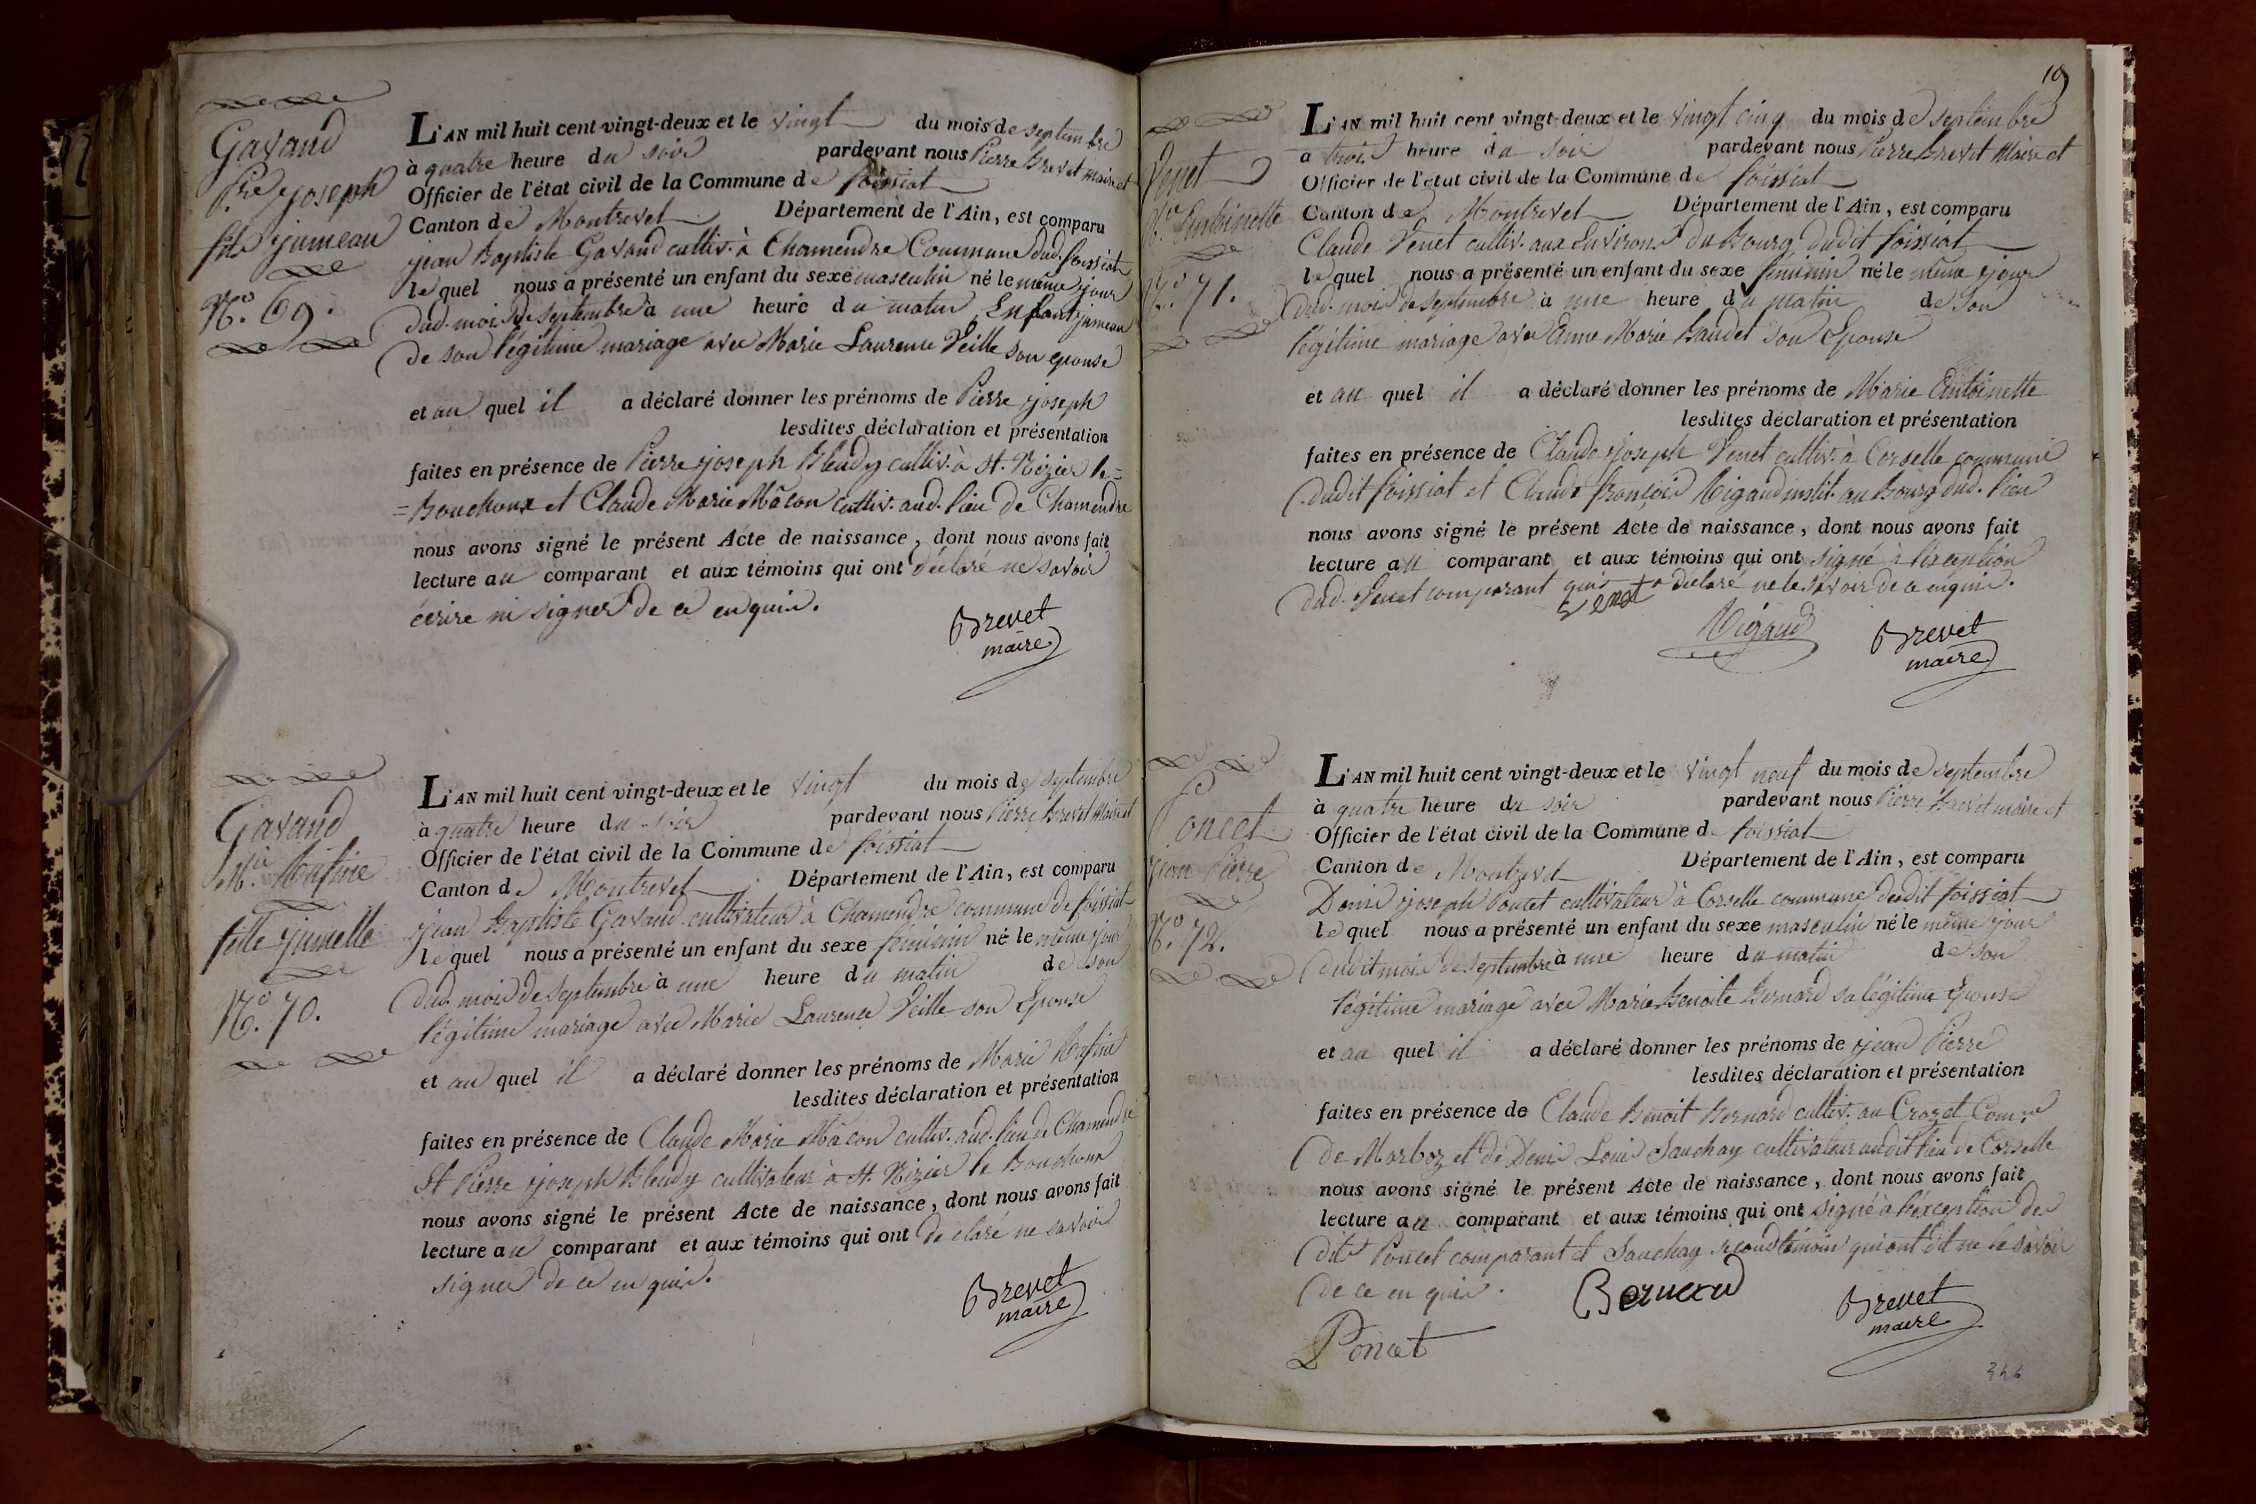 Gavand
P.re joseph
fils jumeau
N.o 69.
L'AN mil huit cent vingt-deux et le vingt du mois de septembre
à quatre heure du soir pardevant nous Pierre Brevet maire et
Officier de l'état civil de la Commune de foissiat
Canton de Montrevel Département de l'Ain, est comparu
jean Baptiste Gavand cultiv. à Chamendre Commune dud. foissiat
lequel nous a présenté un enfant du sexe masculin né le même jour
dud. mois de septembre à une heure du matin Enfant jumeau
de son légitime mariage avec Marie Laurence Veille son epouse
et au quel il a déclaré donner les prénoms de Pierre joseph
lesdites déclaration et présentation
faites en présence de Pierre joseph Bleudy cultiv. à St. Nizier le=
=Bouchoux et Claude Marie Mâcon cultiv. aud. lieu de Chamendre
nous avons signé le présent Acte de naissance, dont nous avons fait
lecture au comparant et aux témoins qui ont déclaré ne savoir
écrire ni signer de ce enquis.
Brevet
maire
Gavand
M.ie
fille jumelle
N.o 70.
L'AN mil huit cent vingt-deux et le vingt du mois de septembre
à quatre heure du soir pardevant nous Pierre Brevet Maire et
Officier de l'état civil de la Commune de foissiat
Canton de Montrevel Département de l'Ain, est comparu
jean Baptiste Gavand cultivateur à Chamendre commune de foissiat
lequel nous a présenté un enfant du sexe féminin né le même jour
dud. mois de septembre à une heure du matin de son
légitime mariage avec Marie Laurence Veille son Epouse
et au quel il a déclaré donner les prénoms de Marie
lesdites déclaration et présentation
faites en présence de Claude Marie Mâcon cultiv. aud. lieu de Chamendre
et Pierre joseph Bleudy cultivateur à St. Nizier le Bouchoux
nous avons signé le présent Acte de naissance, dont nous avons fait
lecture au comparant et aux témoins qui ont déclaré ne savoir
signer de ce enquis.
Brevet
maire
10
Venet
Antoinette
N.o 71.
L'AN mil huit cent vingt-deux et le vingt cinq du mois de septembre
à trois heure du soir pardevant nous Pierre Brevet Maire et
Officier de l'état civil de la Commune de foissiat
Canton de Montrevel Département de l'Ain, est comparu
Claude Venet cultiv. aux Environs du Bourg dudit foissiat
lequel nous a présenté un enfant du sexe féminin né le même jour
dud. mois de septembre à une heure du matin de son
légitime mariage avec Anne Marie Gaudet son Epouse
et au quel il a déclaré donner les prénoms de Marie Antoinette
lesdites déclaration et présentation
faites en présence de Claude joseph Venet cultiv. à Corselle commune
dudit foissiat et Claude françois Rigaud instit. au Bourg dud. lieu
nous avons signé le présent Acte de naissance, dont nous avons fait
lecture au comparant et aux témoins qui ont signé à l'exception
dud. Venet comparant qui a déclaré ne le savoir de ce enquis.
Venet
Rigaud
Brevet
maire
Poncet
jean Pierre
N.o 72.
L'AN mil huit cent vingt-deux et le vingt neuf du mois de septembre
à quatre heure du soir pardevant nous Pierre Brevet maire et
Officier de l'état civil de la Commune de foissiat
Canton de Montrevel Département de l'Ain, est comparu
Denis joseph Poncet cultivateur à Corselle commune dudit foissiat
lequel nous a présenté un enfant du sexe masculin né le même jour
dudit mois de septembre à une heure du matin de son
légitime mariage avec Marie Benoite Bernard sa légitime Epouse
et au quel il a déclaré donner les prénoms de jean Pierre
lesdites déclaration et présentation
faites en présence de Claude Benoit Bernard cultiv. au Crozet Com.ne
de Marboz et de Denis Louis Sauchay cultivateur audit lieu de Corselle
nous avons signé le présent Acte de naissance, dont nous avons fait
lecture au comparant et aux témoins qui ont signé à l'éxception des
dits Poncet comparant et Sauchay second témoin qui ont dit ne le savoir
de ce enquis.
Bernard
Brevet
maire
Poncet
346